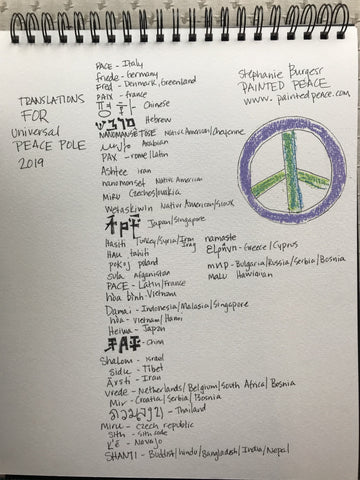 TRANSLATIONS
FOR
Universal
PEACE POLE
2019
Stephanie Burgess
PAINTED PEACE
www.paintedpeace.com
PACE - Italy
Friede - Germany
Fred - Denmark, Greenland
PAIX - france
Chinese
Hebrew
Native American/Cheyenne
Arabian
PAX - rome/Latin
Ashtee Iran
nanomonset Native American
MIRU Czechoslovakia
Wetaskiwin Native American/Sioux
Japan/Singapore
Hasiti Turkey/Syria/Iran Iraq
HAU tahiti
pokoj poland
sula Afganistan
PACE - Latin/France
hòa bình Vietnam
Damai - Indonesia/Malasia/Singapore
hòa - vietnam/Hanoi
Heiwa - Japan
China
Shalom - Israel
Sidu - Tibet
Arsti - Iran
vrede - Netherlands/Belgium/South Africa/Bosnia
Mir - Croatia/Serbia/Bosnia
Thailand
Miru - Czech republic
Sith - Sith code
K'é - Navajo
SHANTI - Buddist/hindu/Bangladesh/India/Nepal
namaste
Greece/Cyprus
мир - Bulgaria/Russia/Serbia/Bosnia
MALU Hawiian